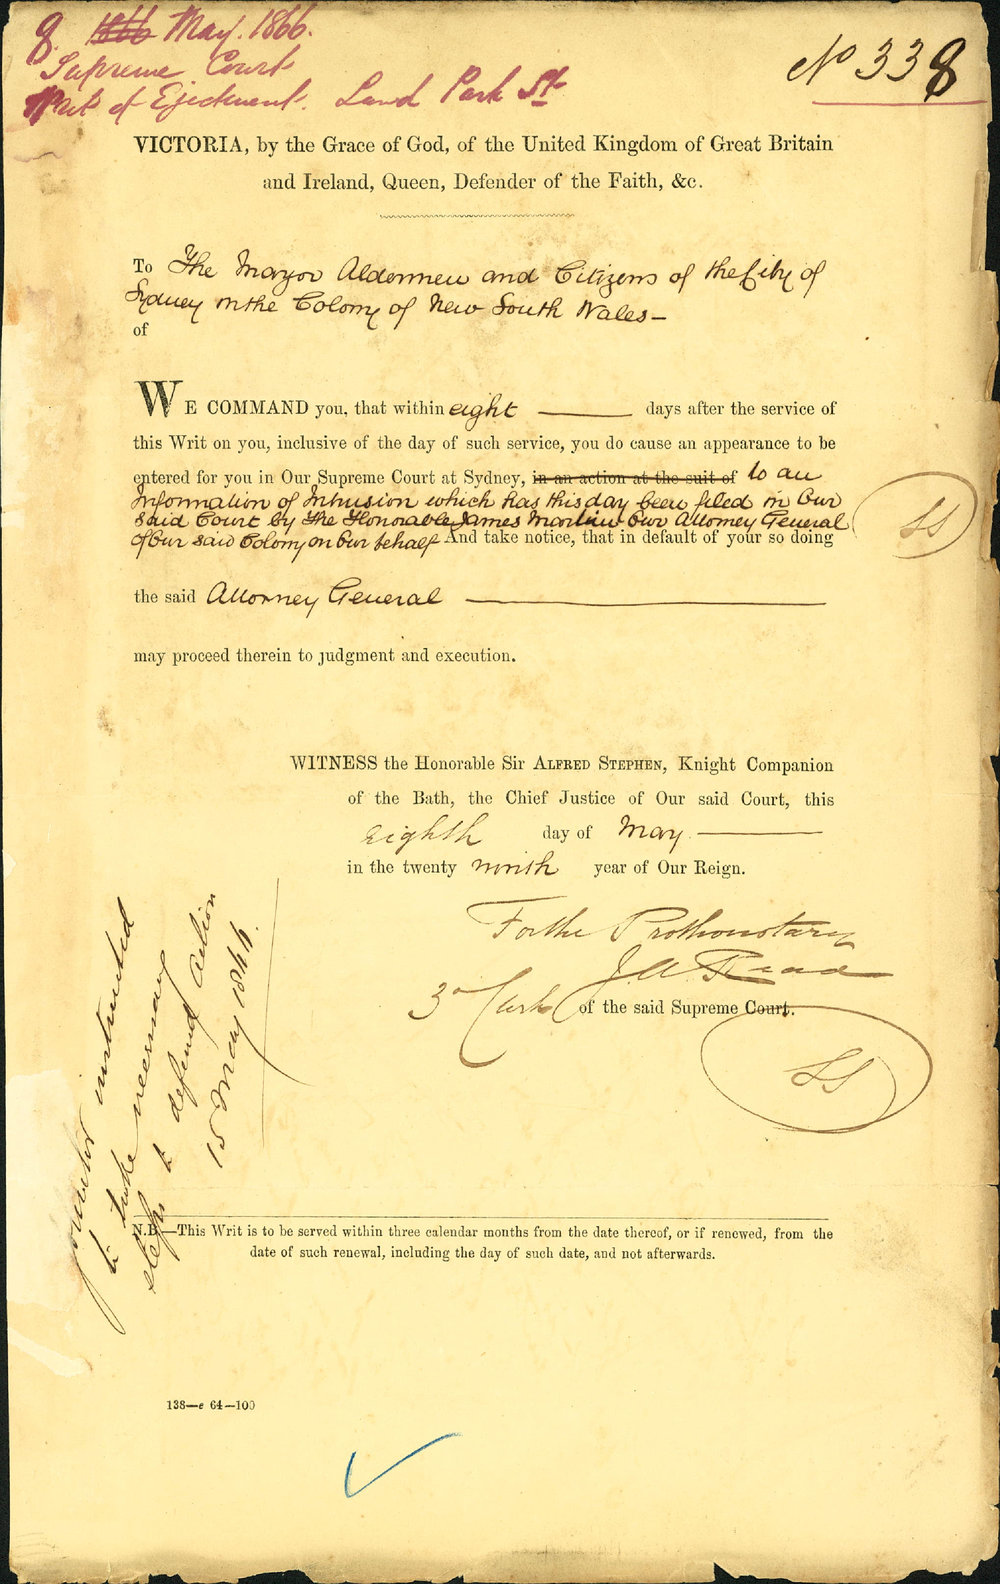 8 1866 May. 1866.
Supreme Court
Writ of Ejectment. Land Park St
No 338
VICTORIA, by the Grace of God, of the United Kingdom of Great Britain
and Ireland, Queen, Defender of the Faith, &c.
To The Mayor Aldermen and Citizens of the City of
Sydney in the Colony of New South Wales—
of
WE COMMAND you, that within eight days after the service of
this Writ on you, inclusive of the day of such service, you do cause an appearance to be
entered for you in Our Supreme Court at Sydney, in an action at the suit of to an
Information of Intrusion which has this day been filed in Our
said Court by The Honorable James Martin Our Attorney General
of Our said Colony on Our behalf And take notice, that in default of your so doing
LS
the said Attorney General
may proceed therein to judgment and execution.
WITNESS the Honorable Sir ALFRED STEPHEN, Knight Companion
of the Bath, the Chief Justice of Our said Court, this
Eighth day of May
in the twenty ninth year of Our Reign.
For the Prothonotary
3d Clerk of the said Supreme Court.
LS
instructed
to take necessary
steps to defend action
15 May 1866.
N.B.—This Writ is to be served within three calendar months from the date thereof, or if renewed, from the
date of such renewal, including the day of such date, and not afterwards.
138—e 64—100